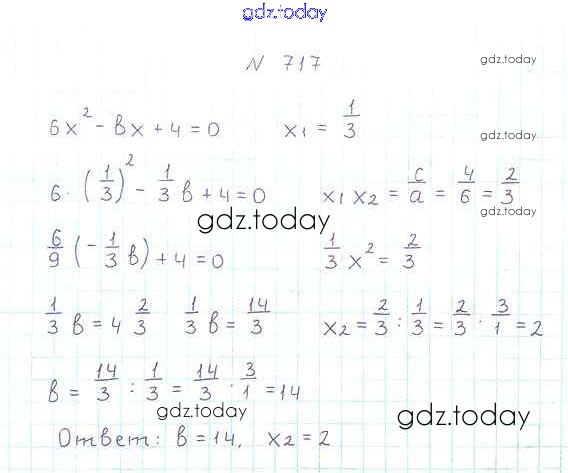 gdz.today
N 717 gdz.today
6x² - вx + 4 = 0 x₁ = 1/3 gdz.today
6 · (1/3)² - 1/3 в + 4 = 0 x₁ x₂ = c/a = 4/6 = 2/3
gdz.today gdz.today
6/9 (- 1/3 в) + 4 = 0 1/3 x² = 2/3
1/3 в = 4 2/3 1/3 в = 14/3 x₂ = 2/3 : 1/3 = 2/3 · 3/1 = 2
в = 14/3 : 1/3 = 14/3 · 3/1 = 14
gdz.today gdz.today
Ответ: в = 14, x₂ = 2